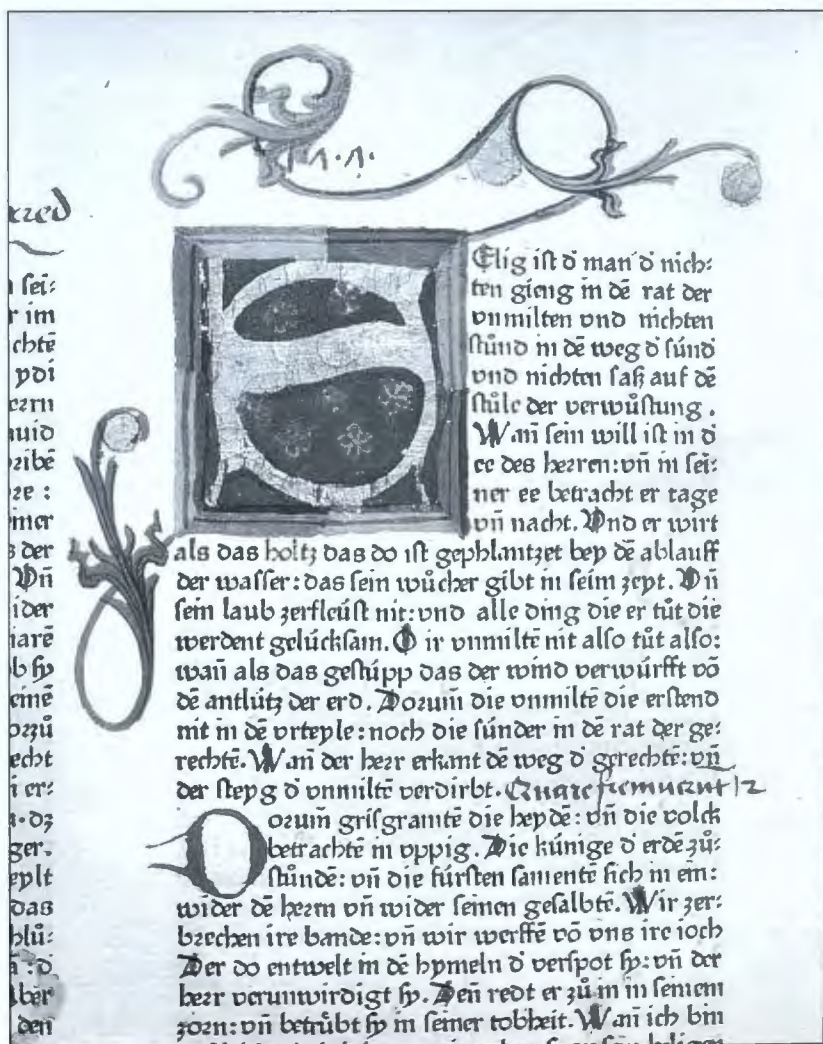 ·1·1·
cred
ſei:
r im
chtē
ydi
ze :
s der
Vn̄
ider
iarē
b ſy
einē
echt
i er:
ger.
eplt
das
blů:
den
SElig iſt d̕ man d̕ nich:
ten gieng in dē rat der
vnmilten vnd nichten
ſtůnd in dē weg d̕ ſúnd
vnd nichten ſaß auf dē
ſtůle der verwůſtung .
Wan̄ ſein will iſt in d̕
ee des herren: vn̄ in ſei:
ner ee betracht er tage
vn̄ nacht. Vnd er wirt
als das holtz das do iſt gephlantzet bey dē ablauff
der waſſer: das ſein wůcher gibt in ſeim zeyt. Vn̄
ſein laub zerfleúſt nit: vnd alle ding die er tůt die
werdent gelúckſam. O ir vnmiltē nit alſo tůt alſo:
wan̄ als das geſtúpp das der wind verwúrfft vō
dē antlútz der erd. Dorum̄ die vnmiltē die erſtend
nit in dē vrteyle: noch die ſúnder in dē rat der ge:
rechtē. Wan̄ der herr erkant dē weg d̕ gerechtē: vn̄
der ſteyg d̕ vnmiltē verdirbt. Quare fremuerunt 2
Dorum̄ griſgramtē die heydē: vn̄ die volck
betrachtē in vppig. Die kúnige d̕ erdē zů:
ſtůndē: vn̄ die fúrſten ſamentē ſich in ein:
wider dē herrn vn̄ wider ſeinen geſalbtē. Wir zer:
brechen ire bande: vn̄ wir werffē vō vns ire ioch
Der do entwelt in dē hymeln d̕ verſpot ſy: vn̄ der
herr verunwirdigt ſy. Den̄ redt er zů in in ſeinem
zorn: vn̄ betrůbt ſy in ſeiner tobheit. Wan̄ ich bin